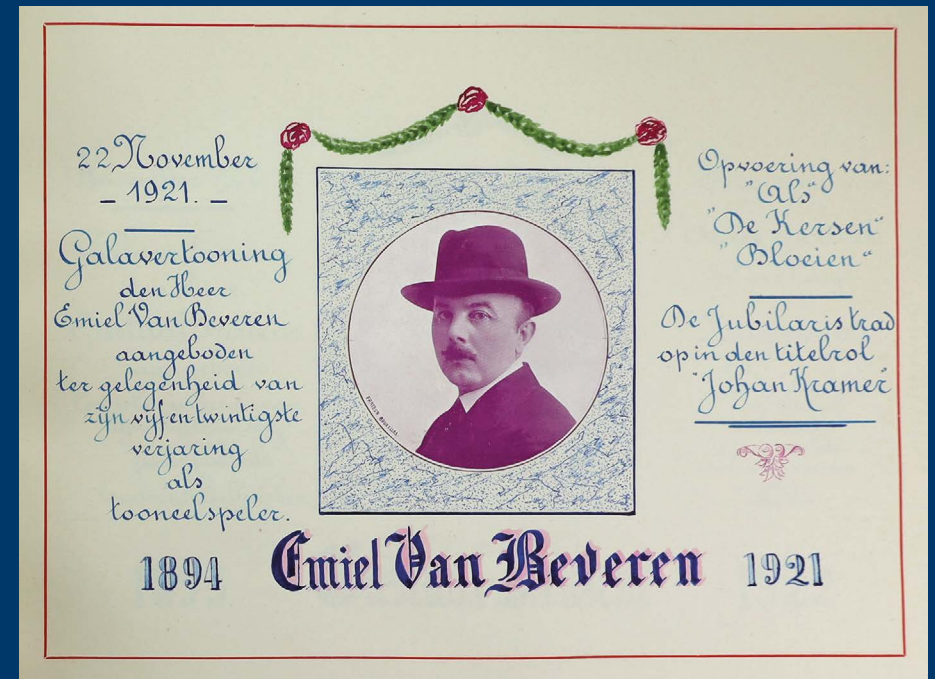 22 November
_ 1921. _
Galavertooning
den Heer
Emiel Van Beveren
aangeboden
ter gelegenheid van
zijn vijfentwintigste
verjaring
als
tooneelspeler.
Opvoering van:
"Als"
"De Kersen"
"Bloeien"
De Jubilaris trad
op in den titelrol
"Johan Kramer"
1894 Emiel Van Beveren 1921